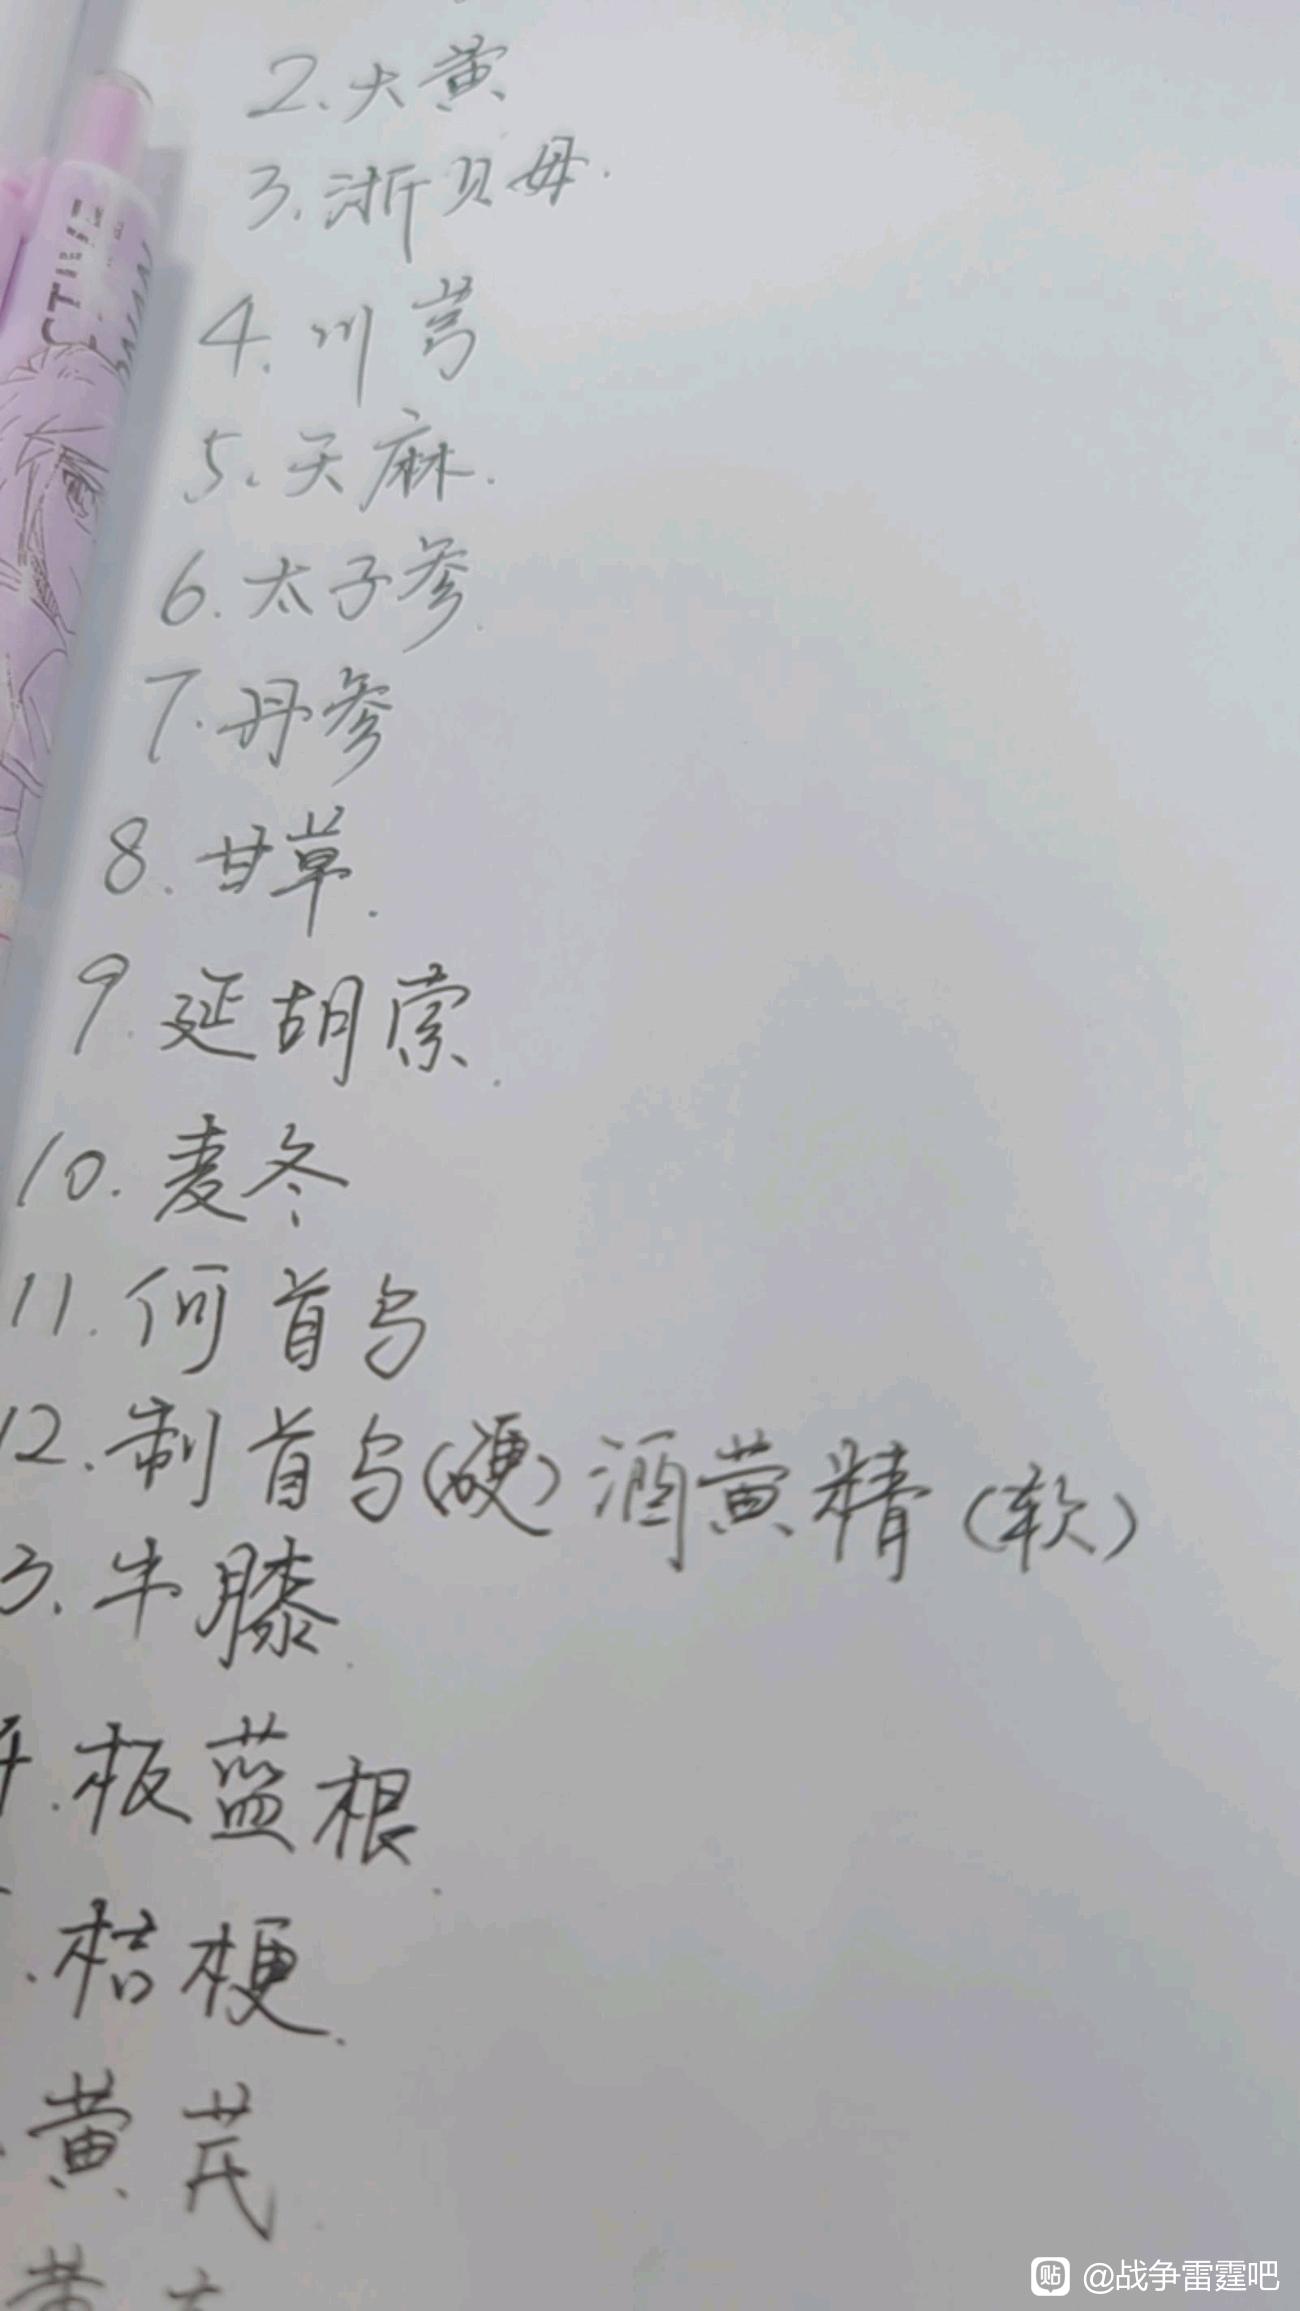 2.大黄
3.浙贝母.
4.川芎
5.天麻.
6.太子参.
7.丹参
8.甘草.
9.延胡索.
10.麦冬
11.何首乌
12.制首乌(硬)酒黄精(软)
3.牛膝.
.板蓝根.
.桔梗.
黄芪.
黄
@战争雷霆吧